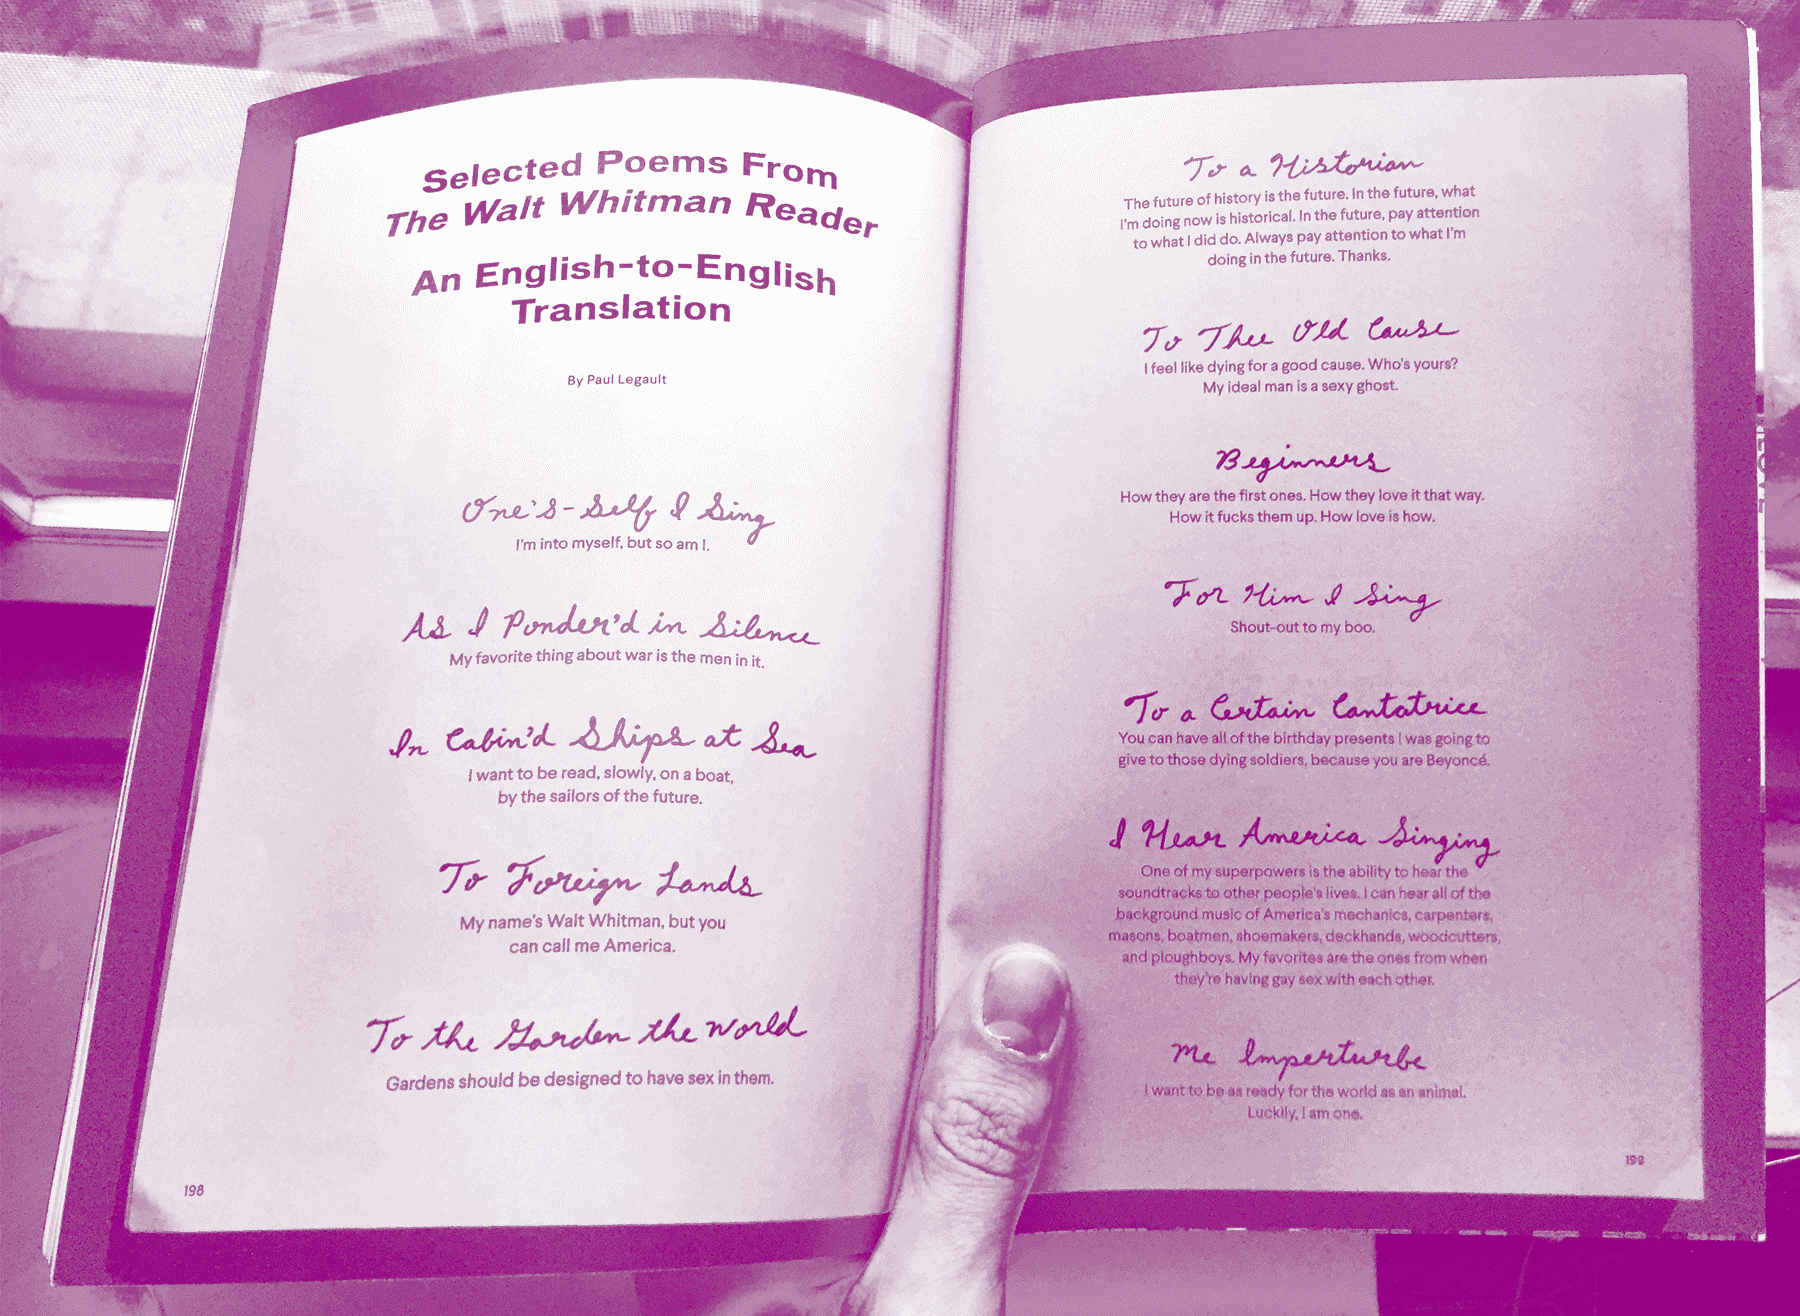 Selected Poems From
The Walt Whitman Reader
An English-to-English
Translation
By Paul Legault
One's-Self I Sing
I'm into myself, but so am I.
As I Ponder'd in Silence
My favorite thing about war is the men in it.
In Cabin'd Ships at Sea
I want to be read, slowly, on a boat,
by the sailors of the future.
To Foreign Lands
My name's Walt Whitman, but you
can call me America.
To the Garden the World
Gardens should be designed to have sex in them.
198
To a Historian
The future of history is the future. In the future, what
I'm doing now is historical. In the future, pay attention
to what I did do. Always pay attention to what I'm
doing in the future. Thanks.
To Thee Old Cause
I feel like dying for a good cause. Who's yours?
My ideal man is a sexy ghost.
Beginners
How they are the first ones. How they love it that way.
How it fucks them up. How love is how.
For Him I Sing
Shout-out to my boo.
To a Certain Cantatrice
You can have all of the birthday presents I was going to
give to those dying soldiers, because you are Beyoncé.
I Hear America Singing
One of my superpowers is the ability to hear the
soundtracks to other people's lives. I can hear all of the
background music of America's mechanics, carpenters,
masons, boatmen, shoemakers, deckhands, woodcutters,
and ploughboys. My favorites are the ones from when
they're having gay sex with each other.
Me Imperturbe
I want to be as ready for the world as an animal.
Luckily, I am one.
199